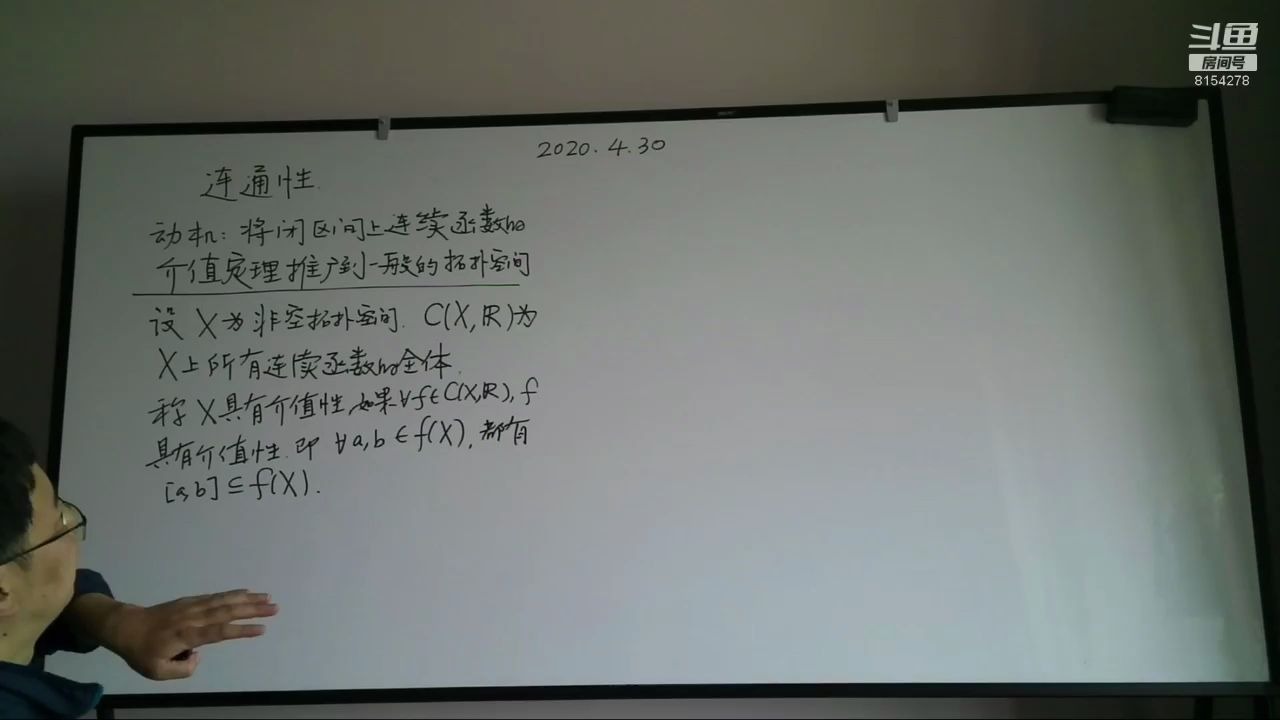 斗鱼
房间号
8154278
2020.4.30
连通性.
动机: 将闭区间上连续函数的
介值定理推广到一般的拓扑空间
设 X 为非空拓扑空间. C(X,ℝ)为
X上所有连续函数的全体.
称 X具有介值性,如果∀f∈C(X,ℝ), f
具有介值性. 即 ∀a,b∈f(X), 都有
[a,b]⊆f(X).